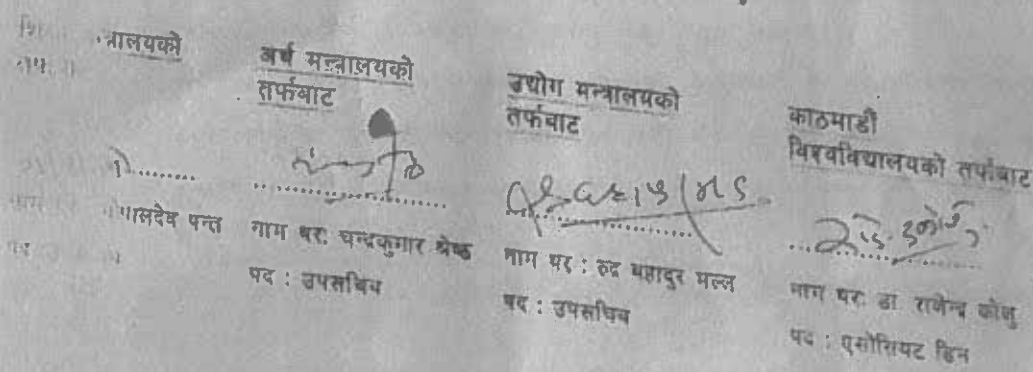 त्रालयको
अर्थ मन्त्रालयको
तर्फबाट
नाम थर: चन्द्रकुमार श्रेष्ठ
पद : उपसचिव
उद्योग मन्त्रालयको
तर्फबाट
नाम थर : रुद्र बहादुर मल्ल
पद : उपसचिव
काठमाडौं
विश्वविद्यालयको तर्फबाट
नाम थर: डा राजेन्द्र कोजु
पद : एसोसियट डिन
पालदेव पन्त